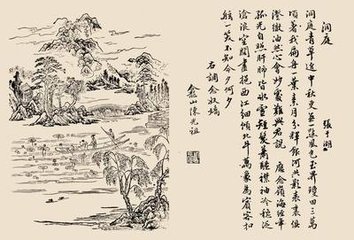 洞庭
張于湖
洞庭青草近中秋更無一點風色玉界瓊田三萬
頃著我扁舟一葉素月分輝銀河共影表裏俱
澄澈油然心會妙處難與君說 應念嶺海經年
孤光自照肝肺皆冰雪短髮蕭騷襟袖冷穩泛
滄浪空闊盡挹西江細傾北斗萬象為賓客扣
舷一笑不知今何夕
右調念奴嬌
金山陳元祖